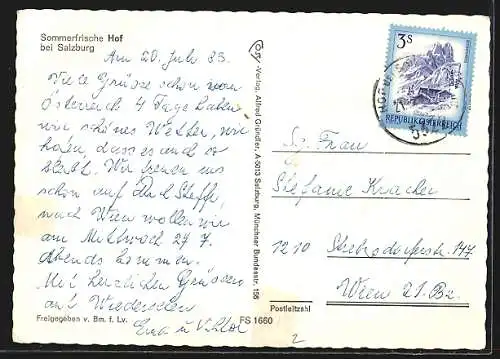 Sommerfrische Hof
bei Salzburg
Am 20. Juli 83.
Viele Grüsse schon vom
Österreich 4 Tage haben
wir schönes Wetter, wir
hofen dass es auch so
bleibt. Wir freuen uns
schon auf Dich Steffi,
nach Wien wollen wir
am Mittwoch 27 7.
Abends kommen.
Mit herzlichen Grüssen
auf Wiedersehen
Freigegeben v. Bm. f. Lv.
FS 1660
-Verlag, Alfred Gründler, A-5013 Salzburg, Münchner Bundesstr. 156
3S
REPUBLIK ÖSTERREICH
Sg. Frau
Stefanie Kracher
1210
147
Wien 21. Bz.
Postleitzahl
2